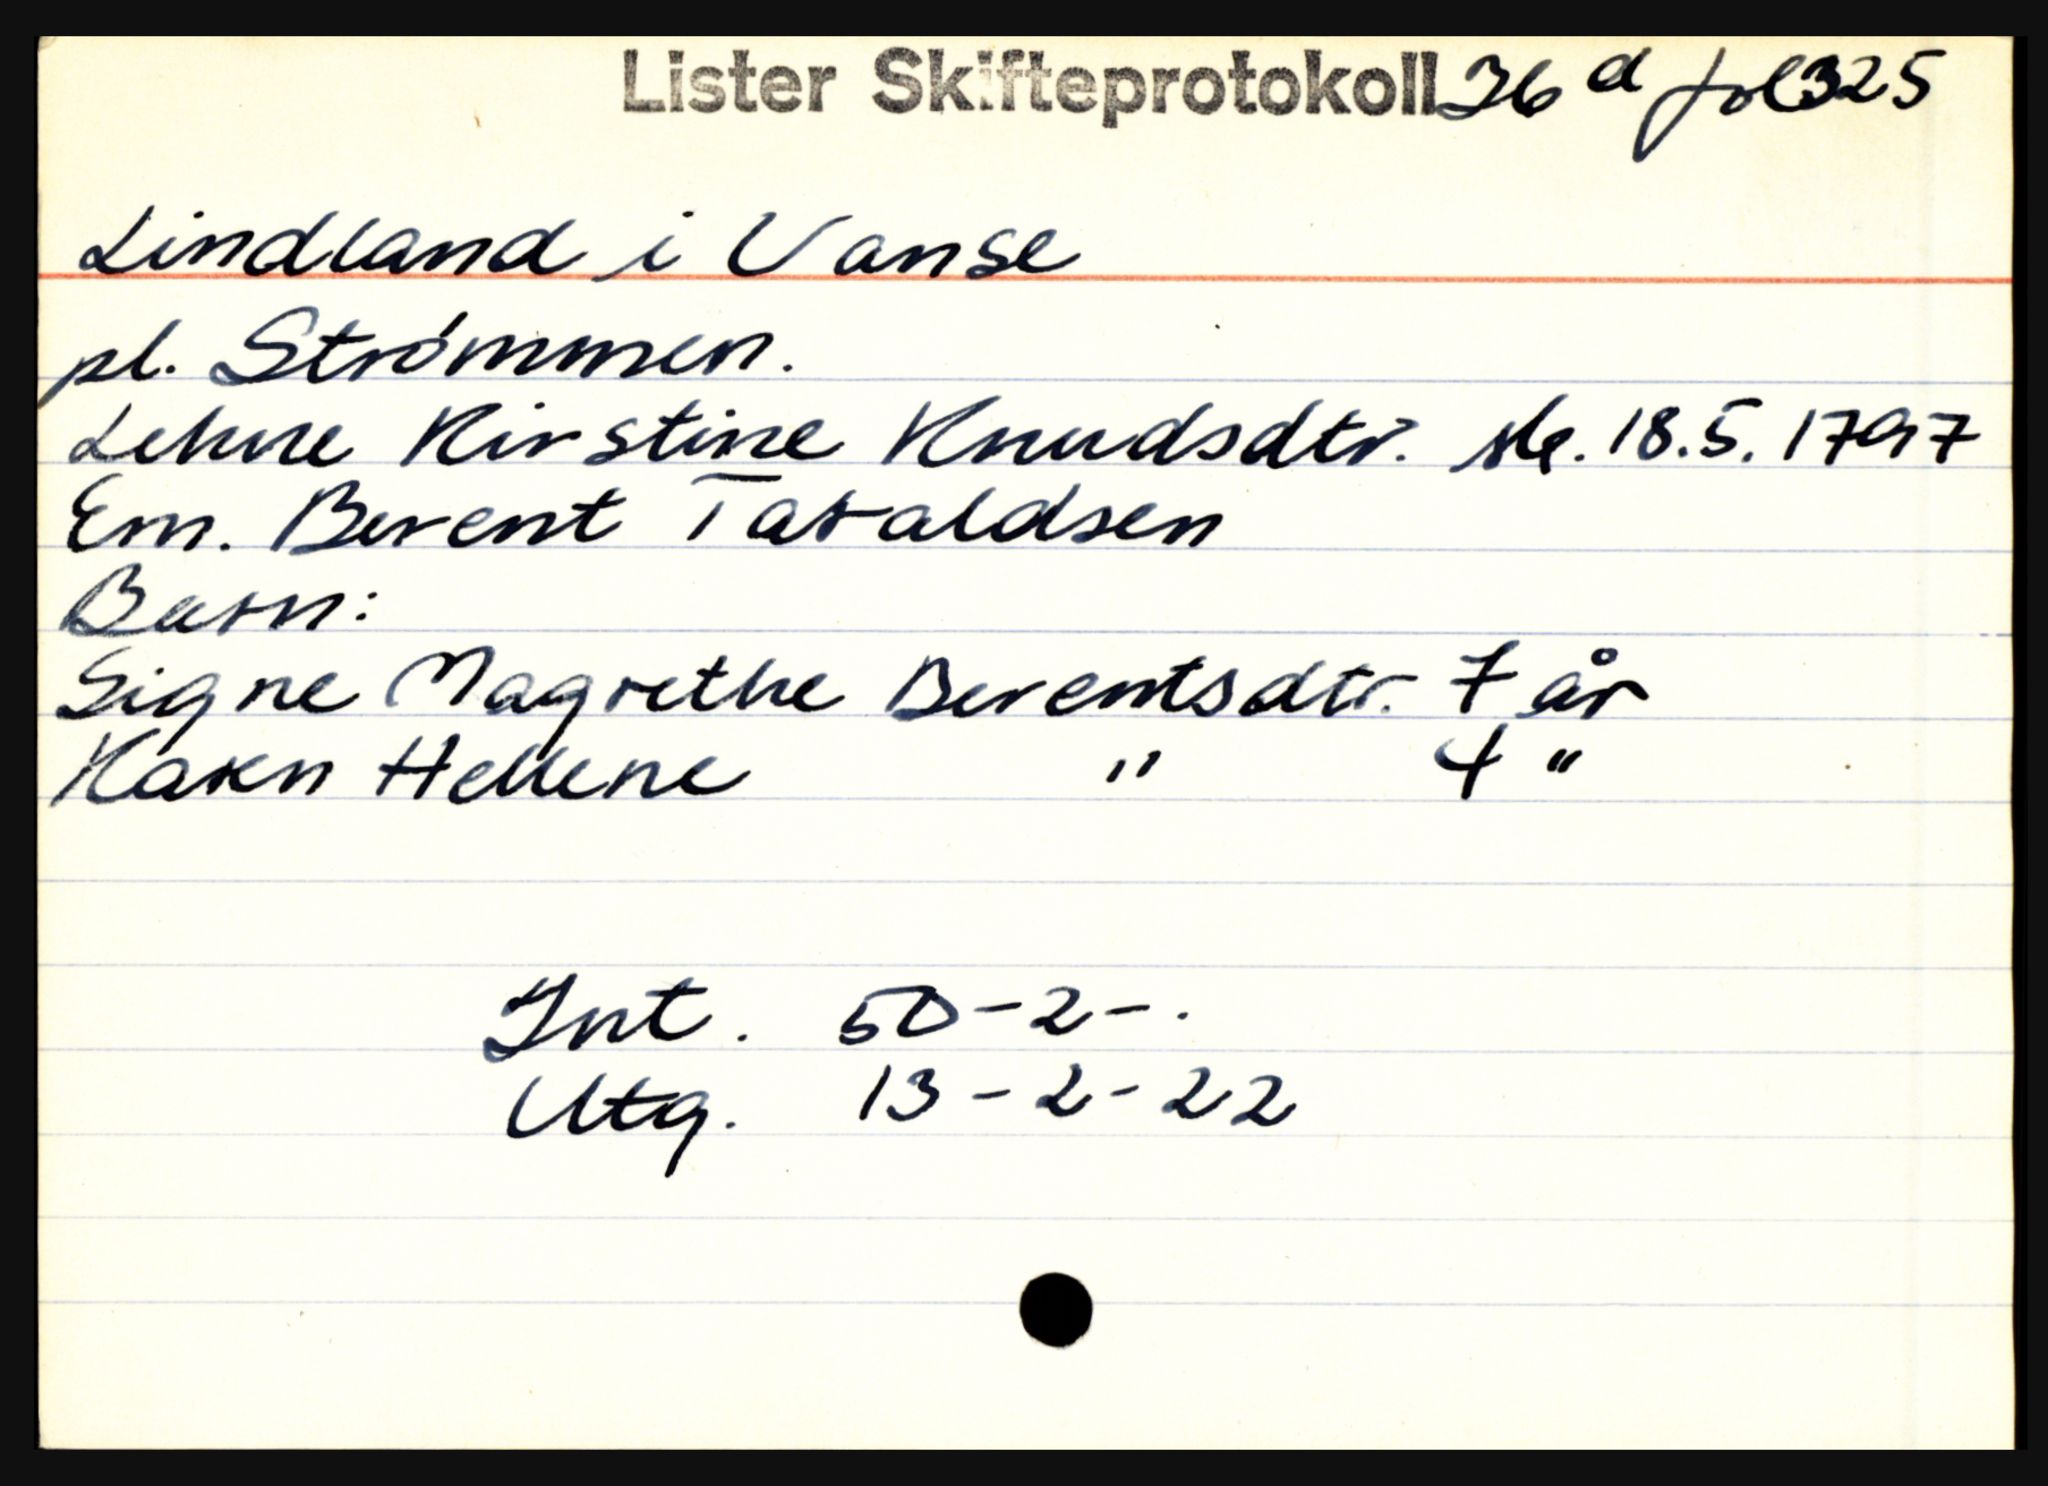 Lister Skifteprotokoll 36 d fol 325
Lindland i Vanse
pl. Strømmen.
Lehne Kirstine Knudsdtr. sk. 18.5.1797
Em. Berent Taraldsen
Barn:
Signe Magrethe Berentsdtr. 7 år
Karen Hellene " 4 "
Int. 50-2-.
Utg. 13-2-22